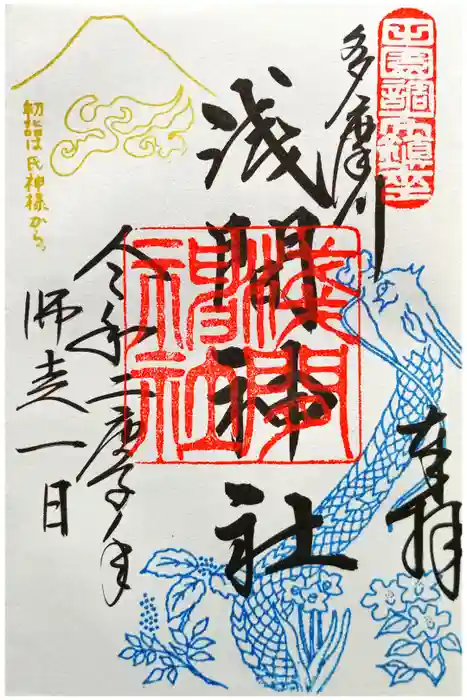 田園調布鎮座
奉拝
多摩川
浅間神社
淺間神社
令和二庚子ノ年
師走一日
初詣は氏神様から。